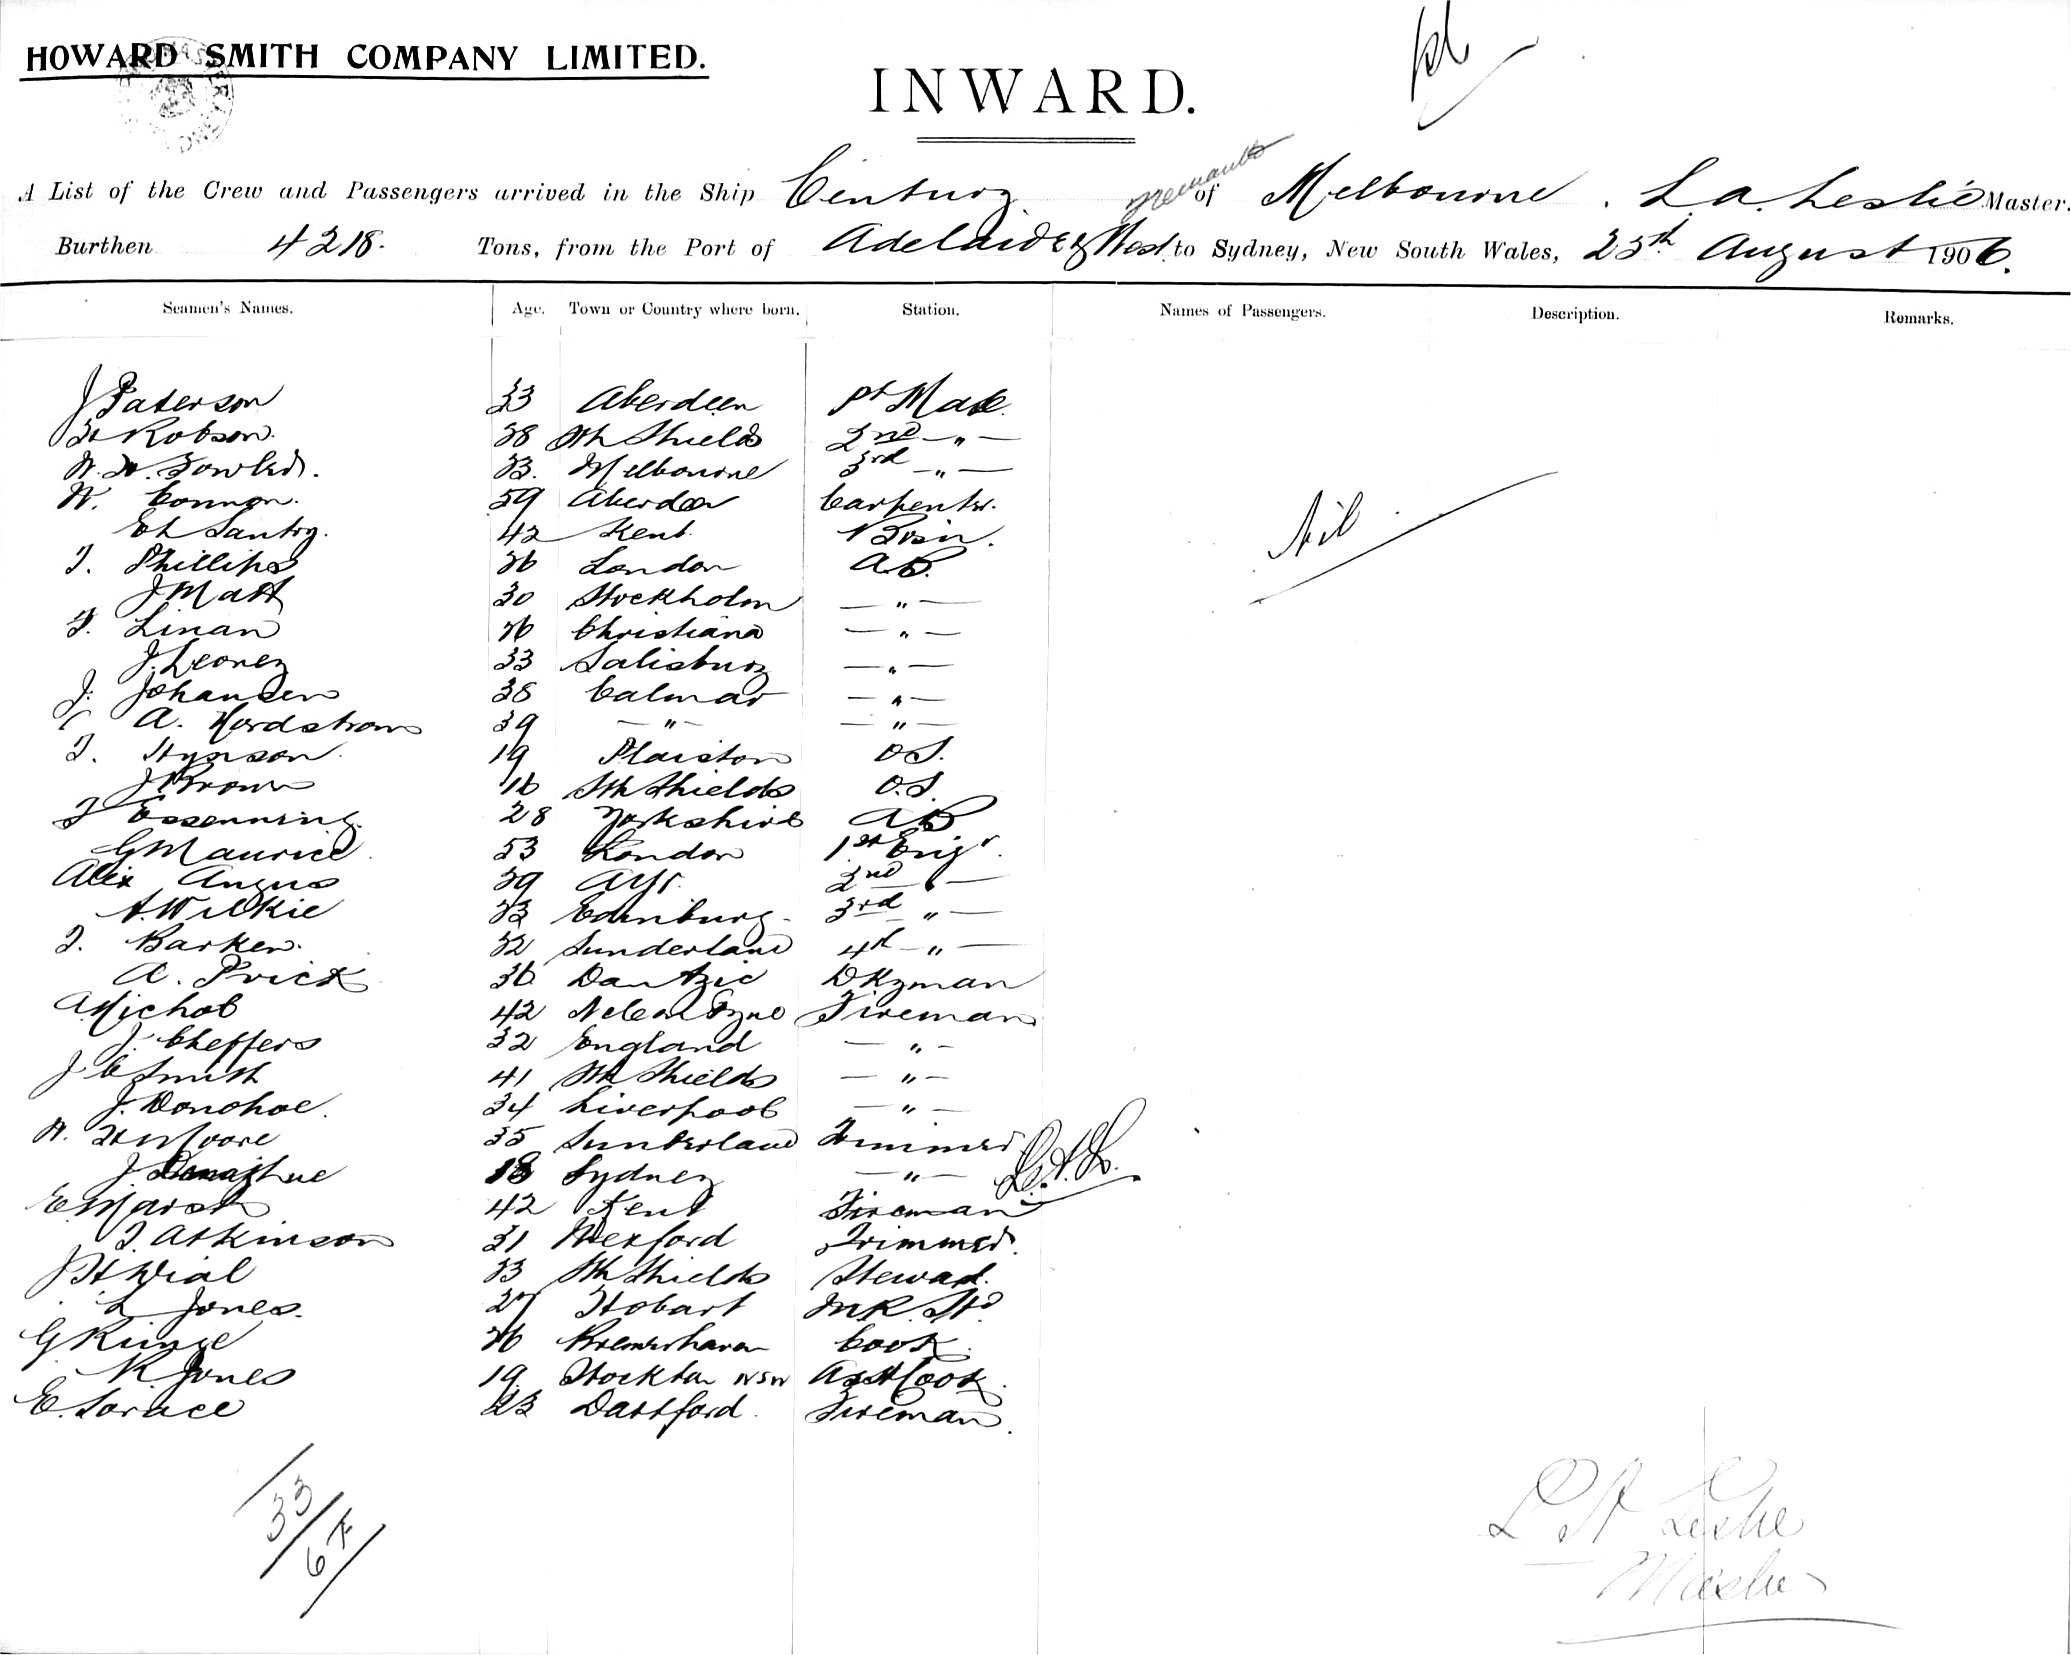 HOWARD SMITH COMPANY LIMITED.
INWARD.
A List of the Crew and Passengers arrived in the Ship Century of Melbourne. L. A. Leslie Master.
Burthen 4218. Tons, from the Port of Adelaide & West to Sydney, New South Wales, 25th August 1906.
Seamen's Names. Age. Town or Country where born. Station. Names of Passengers. Description. Remarks.
J Paterson 33 Aberdeen Mate.
H Robson. 38 Sth Shields 2nd — " —
33. Melbourne 3rd — " —
W. Connon. 59 Aberdeen Carpenter.
42 Kent Bosn.
Nil
T. Phillips 36 London A.B.
J Matt 30 Stockholm — " —
F. Linan 36 Christiana — " —
33 Salisbury — " —
J. Johansen 38 Calmar — " —
A. Nordstrom 39 — " — — " —
T. Hynson. 19 Plaiston O S.
J Brown 16 Sth Shields O.S.
28 Yorkshire AB
G Maurice 53 London 1st Engr.
Alex Angus 39 Ayr. 2nd " —
A. Wilkie 33 Edinburg 3rd " —
T. Barker. 32 Sunderland 4th — " —
A. Prick 36 Dantzic Dkyman
A Nichol 42 Fireman
J. Cheffers 32 England — " —
J C Smith 41 Sth Shields — " —
J. Donohoe. 34 Liverpool — " —
W. H Moore 35 Sunderland Trimmer
J. 18 Sydney — " — L.A.L.
E Marsh 42 Kent Fireman
T. Atkinson 31 Wexford Trimmer.
J H Dial 33 Sth Shields Steward.
L Jones. 27 Hobart
G 36 Bremerhaven Cook.
R. Jones 19 Stockton NSW Asst Cook.
E. 23 Dartford. Fireman.
33/67
L A Leslie
Master